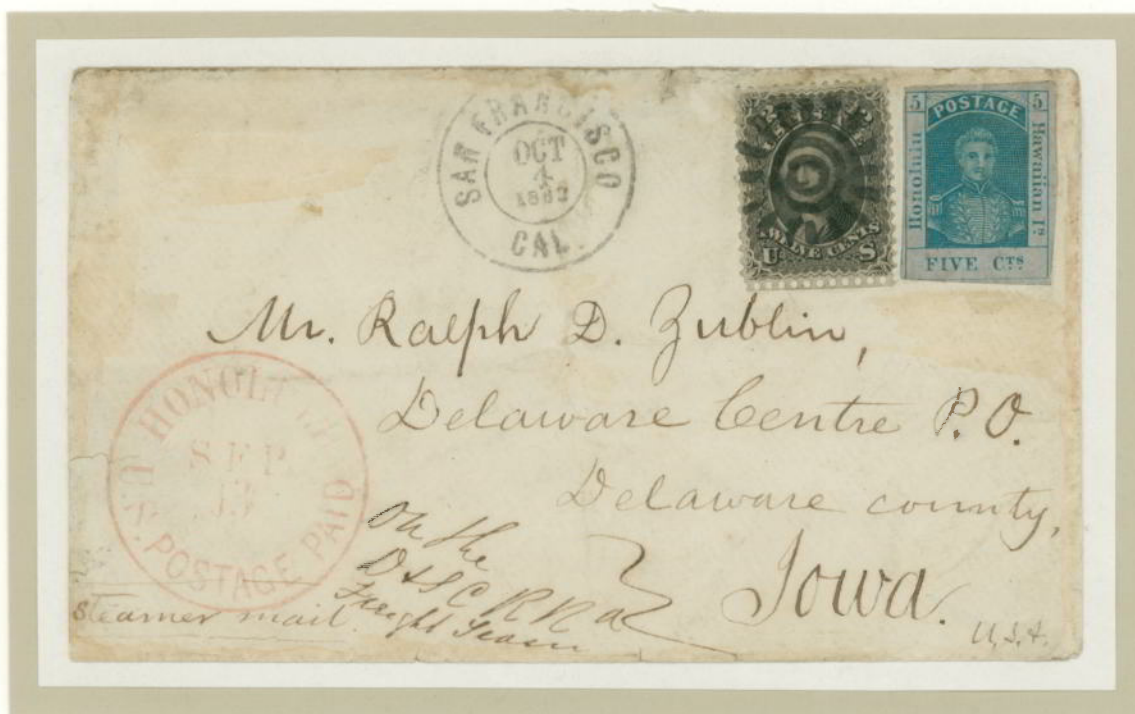 SAN FRANCISCO
OCT
4
1862
CAL.
TWELVE CENTS
U S
5 POSTAGE 5
Honolulu
Hawaiian Is.
FIVE CTS
Mr. Ralph D. Zublin,
Delaware Centre P.O.
Delaware county,
Iowa.
U.S.A.
HONOLULU
SEP
13
U.S. POSTAGE PAID
steamer mail.
On the
Freight